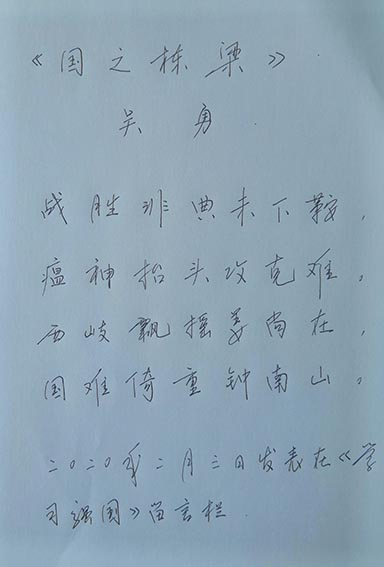 《国之栋梁》
吴勇
战胜非典未下鞍，
瘟神抬头攻克难。
西岐飘摇姜尚在，
国难倚重钟南山。
二〇二〇年二月三日发表在《学
习强国》留言栏.